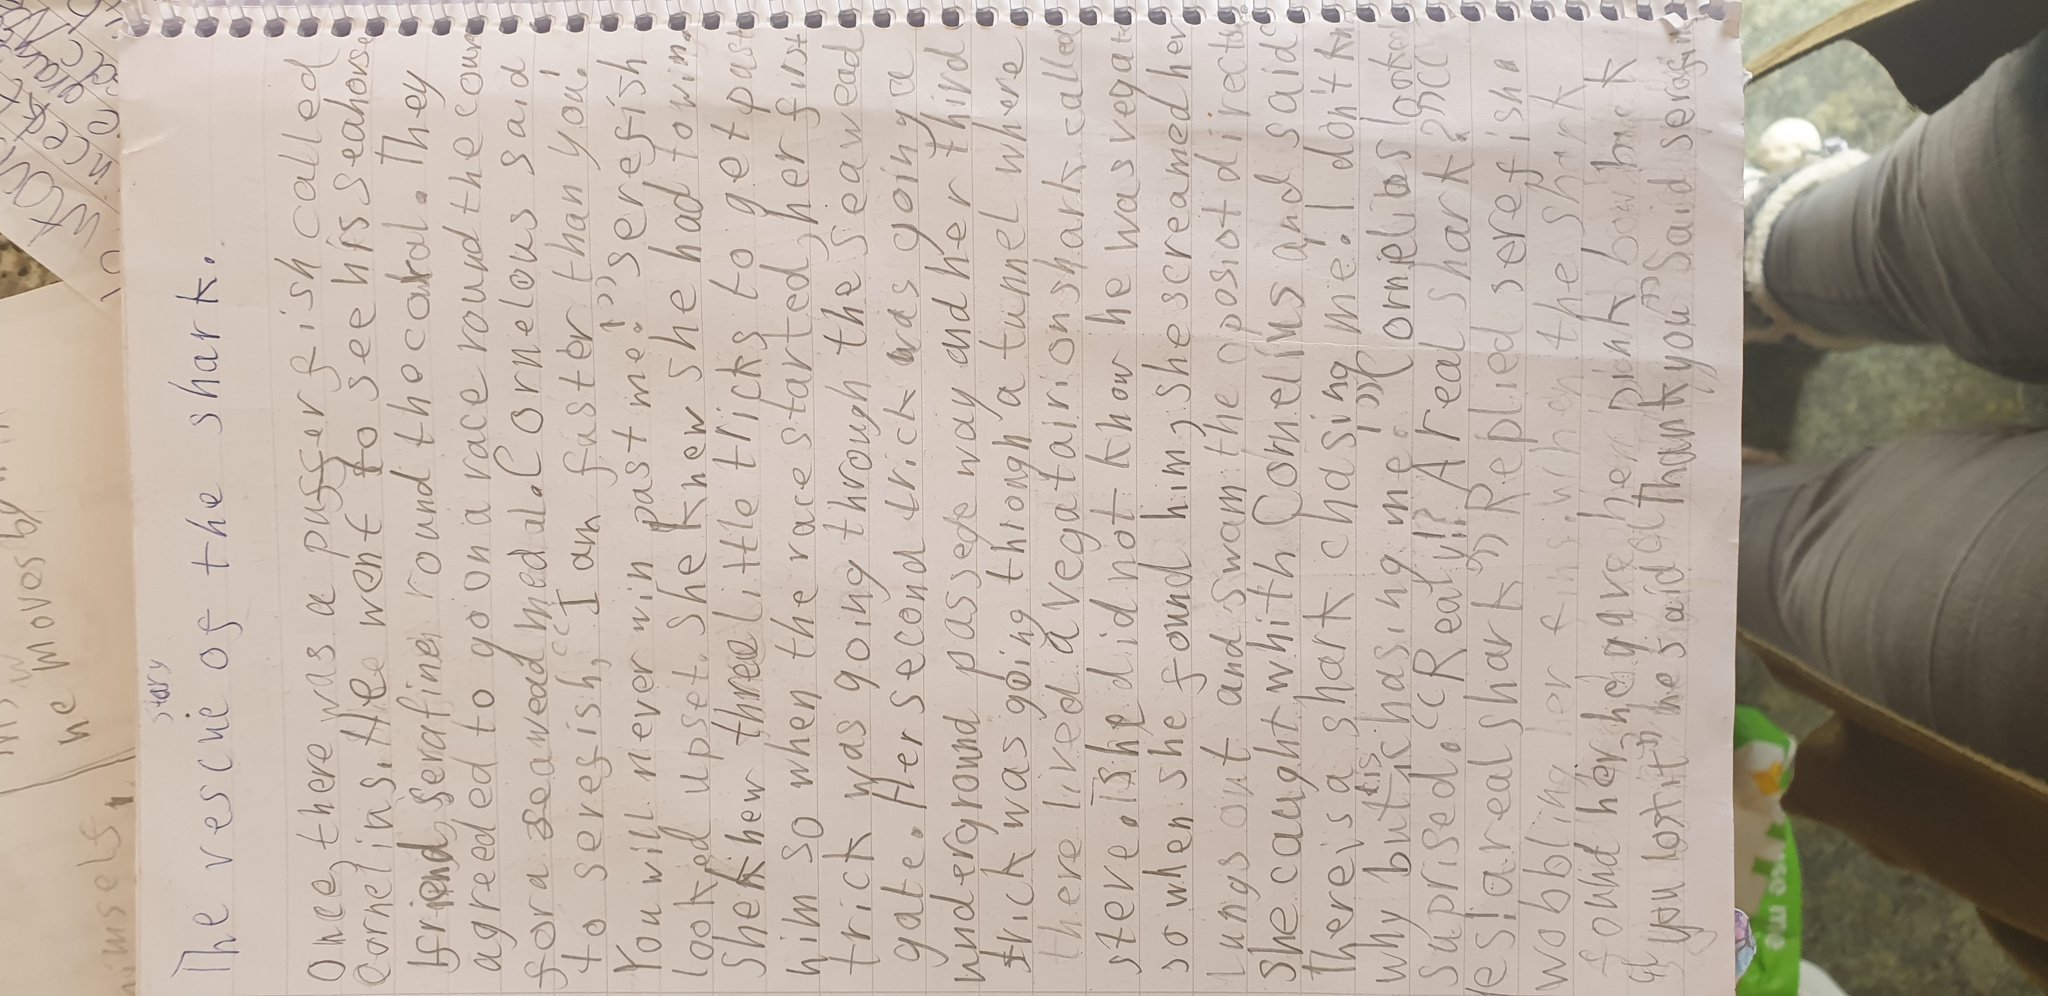 story
The rescue of the shark.
Once, there was a puffer fish called
Cornelius. He went to see his seahorse
friend, Serafine, round the coral. They
agreed to go on a race round the cour
for a seaweed medal. Cornelous said
to serefish, "I am faster than you!
You will never win past me!" serefish
looked upset. she knew she had to win.
She knew three little tricks to get past
him so when the race started, her first
trick was going through the seawead
gate. Her second trick was going a
underground passege way and her third
trick was going through a tunnel where
there lived a vegatairion shark called
steve. She did not know he was vegat
so when she found him, she screamed her
lungs out and swam the oposiot directi
she caught whith Cornelius and said
There is a shark chasing me. I don't kn
why but tis chasing me!" Cornelius looked
suprised. "Really!? A real shark?
yes! a real shark" Replied serefish.
wobbling her fins. when the shark
found her he gave her pink bow back
you lost it" he said "Thank you" said
himself,
he moves by
re me